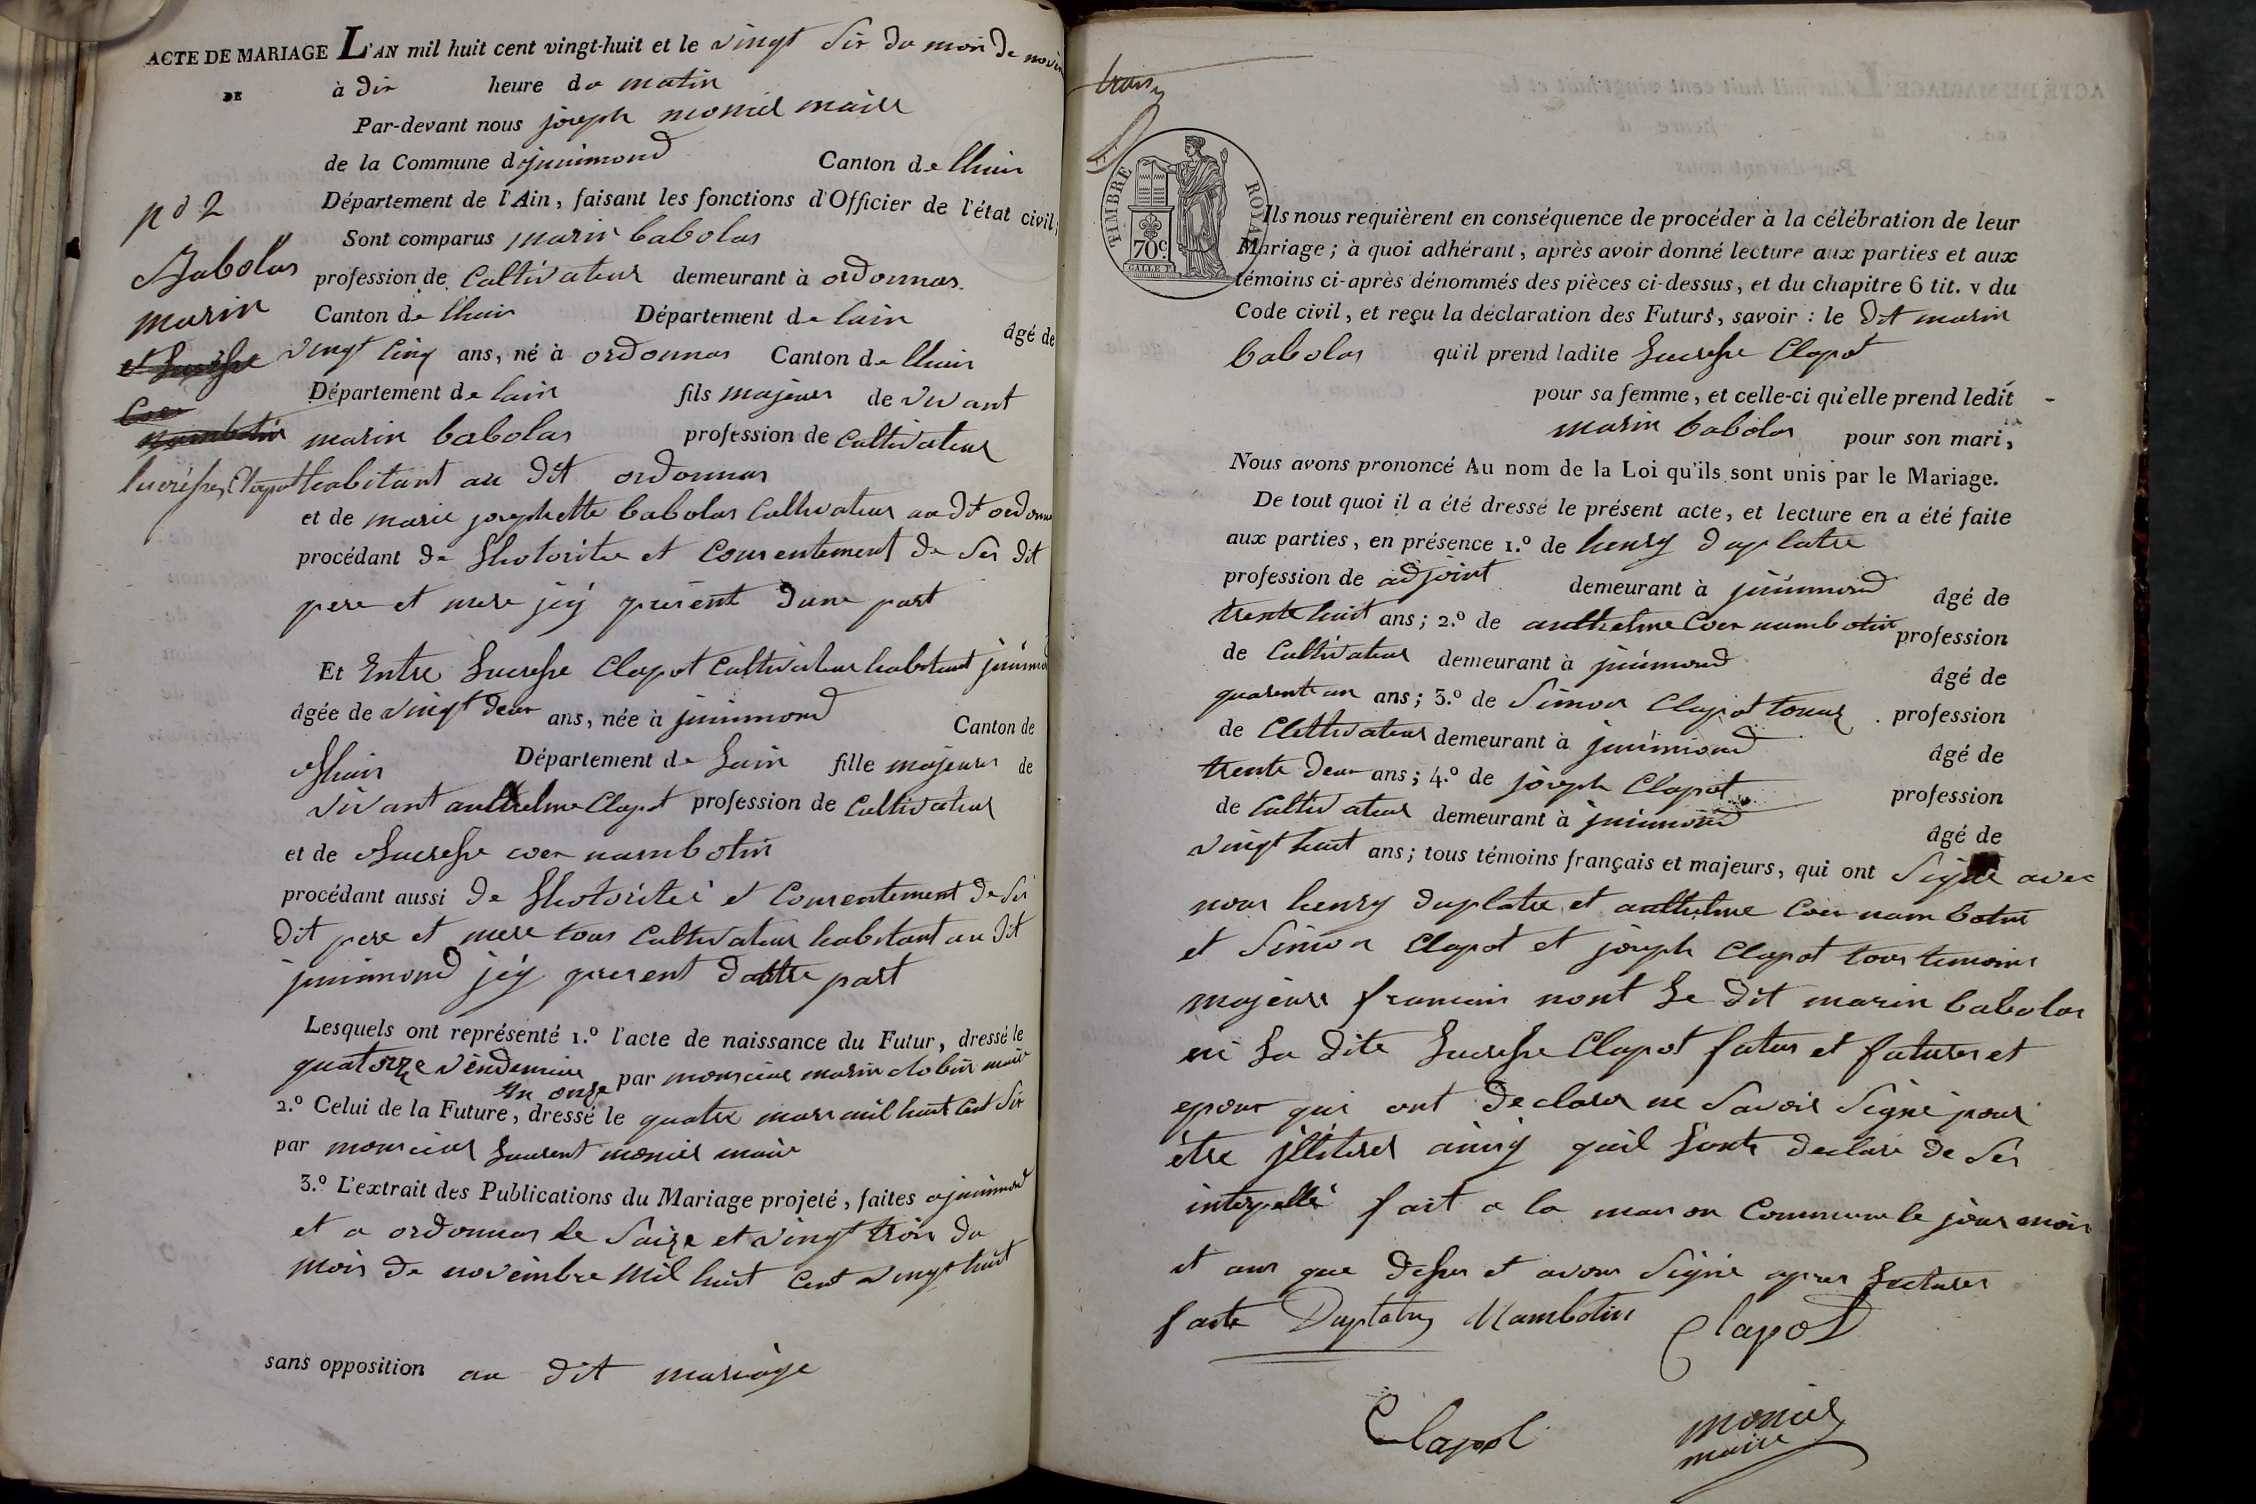 ACTE DE MARIAGE L'AN mil huit cent vingt-huit et le vingt Six du mois de novem
DE
à dix heure du matin
Par-devant nous joseph moniel maire
de la Commune d jnimond Canton de lhuis
Département de l'Ain, faisant les fonctions d'Officier de l'état civil;
Sont comparus marin babolas
profession de Cultivateur demeurant à ordonnas
Canton de lhuis Département de lain âgé de
vingt Cinq ans, né à ordonnas Canton de lhuis
Département de lain fils majeur de vivant
marin babolas profession de Cultivateur
habitant au dit ordonnas
et de marie josephette babolas Cultivateur au dt ordonnas
procédant de Lhotoritee et Consentement de Ses dit
pere et mere jcy present dune part
Et Entre Lucresse Clapot Cultivateur habitant jnimond
âgée de vingt deux ans, née à jnimond Canton de
Lhuis Département de Lain fille majeure de
vivant anthelme Clapot profession de Cultivateur
et de Lucresse coer nambotin
procédant aussi de Lhotoritei et Consentement de Ses
dit pere et mere tous Cultivateur habitant au dit
jnimond jcy present dautre part
Lesquels ont représenté 1.º l'acte de naissance du Futur, dressé le
quatorze vendemiaire an onze par monsieur marin clobin maire
2.º Celui de la Future, dressé le quatre mars mil huit Cent Six
par monsieur Laurent moniel maire
3.º L'extrait des Publications du Mariage projeté, faites a jnimond
et a ordonnas le Saize et vingt trois du
mois de novembre mil huit Cent vingt huit
sans opposition au dit mariage
nº 2
Babolas
marin
et Lucresse
Coer
nambotin
lucrèsse Clapot
TIMBRE ROYAL
70c.
Ils nous requièrent en conséquence de procéder à la célébration de leur
Mariage; à quoi adhérant, après avoir donné lecture aux parties et aux
témoins ci-après dénommés des pièces ci-dessus, et du chapitre 6 tit. v du
Code civil, et reçu la déclaration des Futurs, savoir : le dit marin
babolas qu'il prend ladite Lucresse Clapot
pour sa femme, et celle-ci qu'elle prend ledit
marin babolas pour son mari,
Nous avons prononcé Au nom de la Loi qu'ils sont unis par le Mariage.
De tout quoi il a été dressé le présent acte, et lecture en a été faite
aux parties, en présence 1.º de henry duplatre
profession de adjoint demeurant à jnimond âgé de
trente huit ans; 2.º de anthelme Coer nambotin profession
de Cultivateur demeurant à jnimond âgé de
quarente un ans; 3.º de Simon Clapot profession
de Clettivateur demeurant à jnimiond âgé de
trente deux ans; 4.º de joseph Clapot profession
de Cultivateur demeurant à jnimond âgé de
vingt huit ans; tous témoins français et majeurs, qui ont Signe avec
nous henry duplatre et anthelme Coer nambotin
et Simon Clapot et joseph Clapot tous temoins
majeurs francais nont Le dit marin babolas
ni La dite Lucresse Clapot futur et future et
epoux qui ont declare ne Savoir Signe pour
être jlliteres ainsy quil Sont declare de Ses
interpellé fait a la maison Commune le jour mois
et ans que dessus et avons Signé apres Lectures
faite Duplatre Nambotin Clapot
Clapot moniel
maire